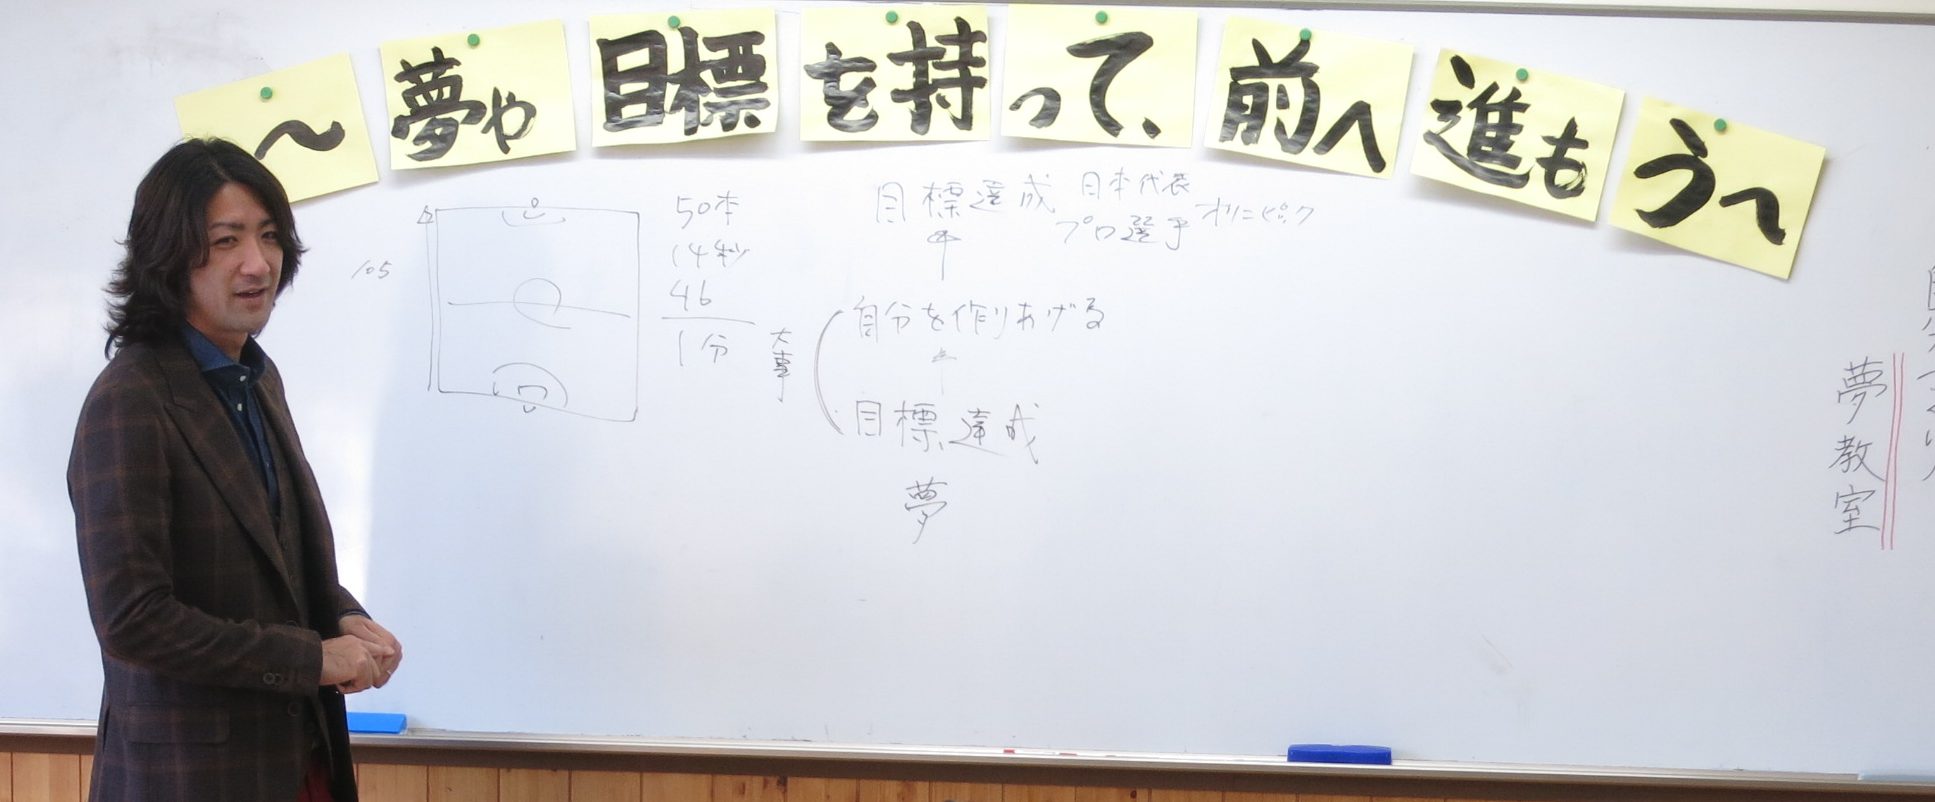 ～夢や目標を持って、前へ進もう～
105
50本
14秒
46
1分
大事
目標達成
日本代表
プロ選手
オリンピック
自分を作りあげる
目標達成
夢
夢教室